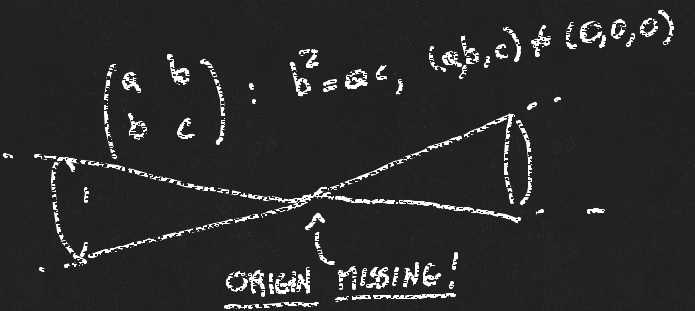 (a b
b c) : b² = ac, (a,b,c) ≠ (0,0,0)
ORIGIN MISSING!